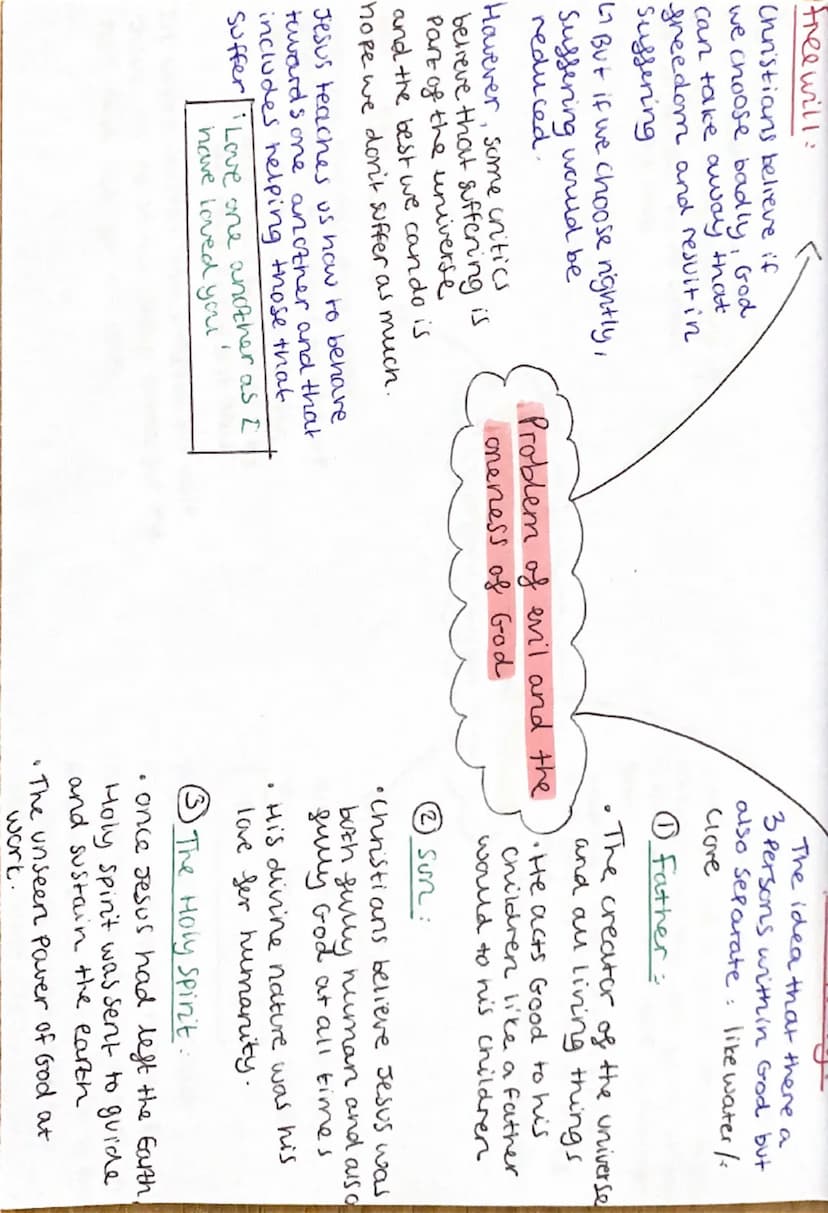 freewill:
Christians believe if
we choose badly, God
can take away that
freedom and result in
suffering
↳ But if we choose rightly,
suffering would be
reduced.
However, some critics
believe that suffering is
part of the universe
and the best we can do is
hope we don't suffer as much.
Jesus teaches us how to behave
towards one another and that
includes helping those that
suffer
'Love one another as I
have loved you'
Problem of evil and the
oneness of God
The idea that there a
3 persons within God but
also separate : like water /
① Father:
· The creator of the universe
and all living things
· He acts Good to his
children like a father
would to his children
② Son:
· Christians believe Jesus was
both fully human and also
fully God at all times
· His divine nature was his
love for humanity.
③ The Holy Spirit:
· once Jesus had left the Earth,
Holy Spirit was sent to guide
and sustain the earth
· The unseen power of God at
work.